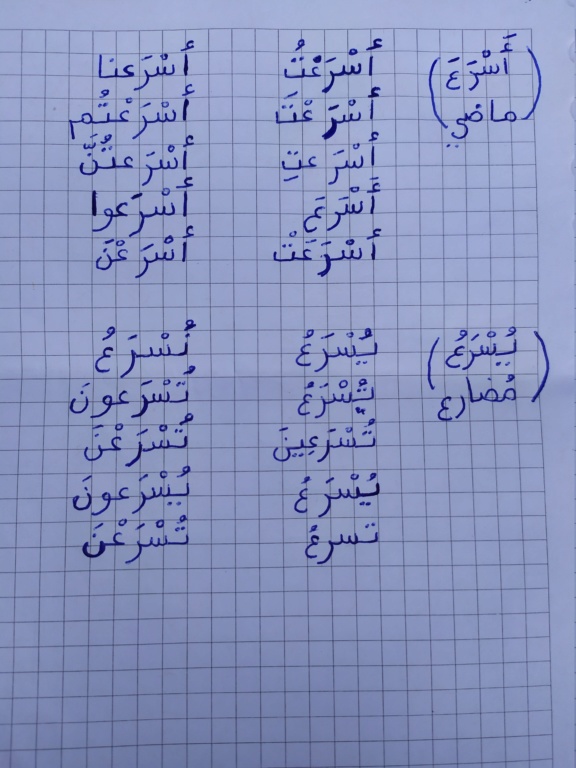 (أَسْرَعَ) أَسْرَعْتُ أَسْرَعنا
(ماضي) أَسْرَعْتَ أَسْرَعْتُم
أَسْرَعتِ أَسْرَعتُنَّ
أَسْرَعَ أَسْرَعوا
أَسْرَعَتْ أَسْرَعْنَ
(يُسْرَعُ) يُسْرَعُ نُسْرَعُ
(مُضارع) تُسْرَعُ تُسْرَعونَ
تُسْرَعِينَ تُسْرَعْنَ
يُسْرَعُ يُسْرَعونَ
تسرعُ تُسْرَعْنَ